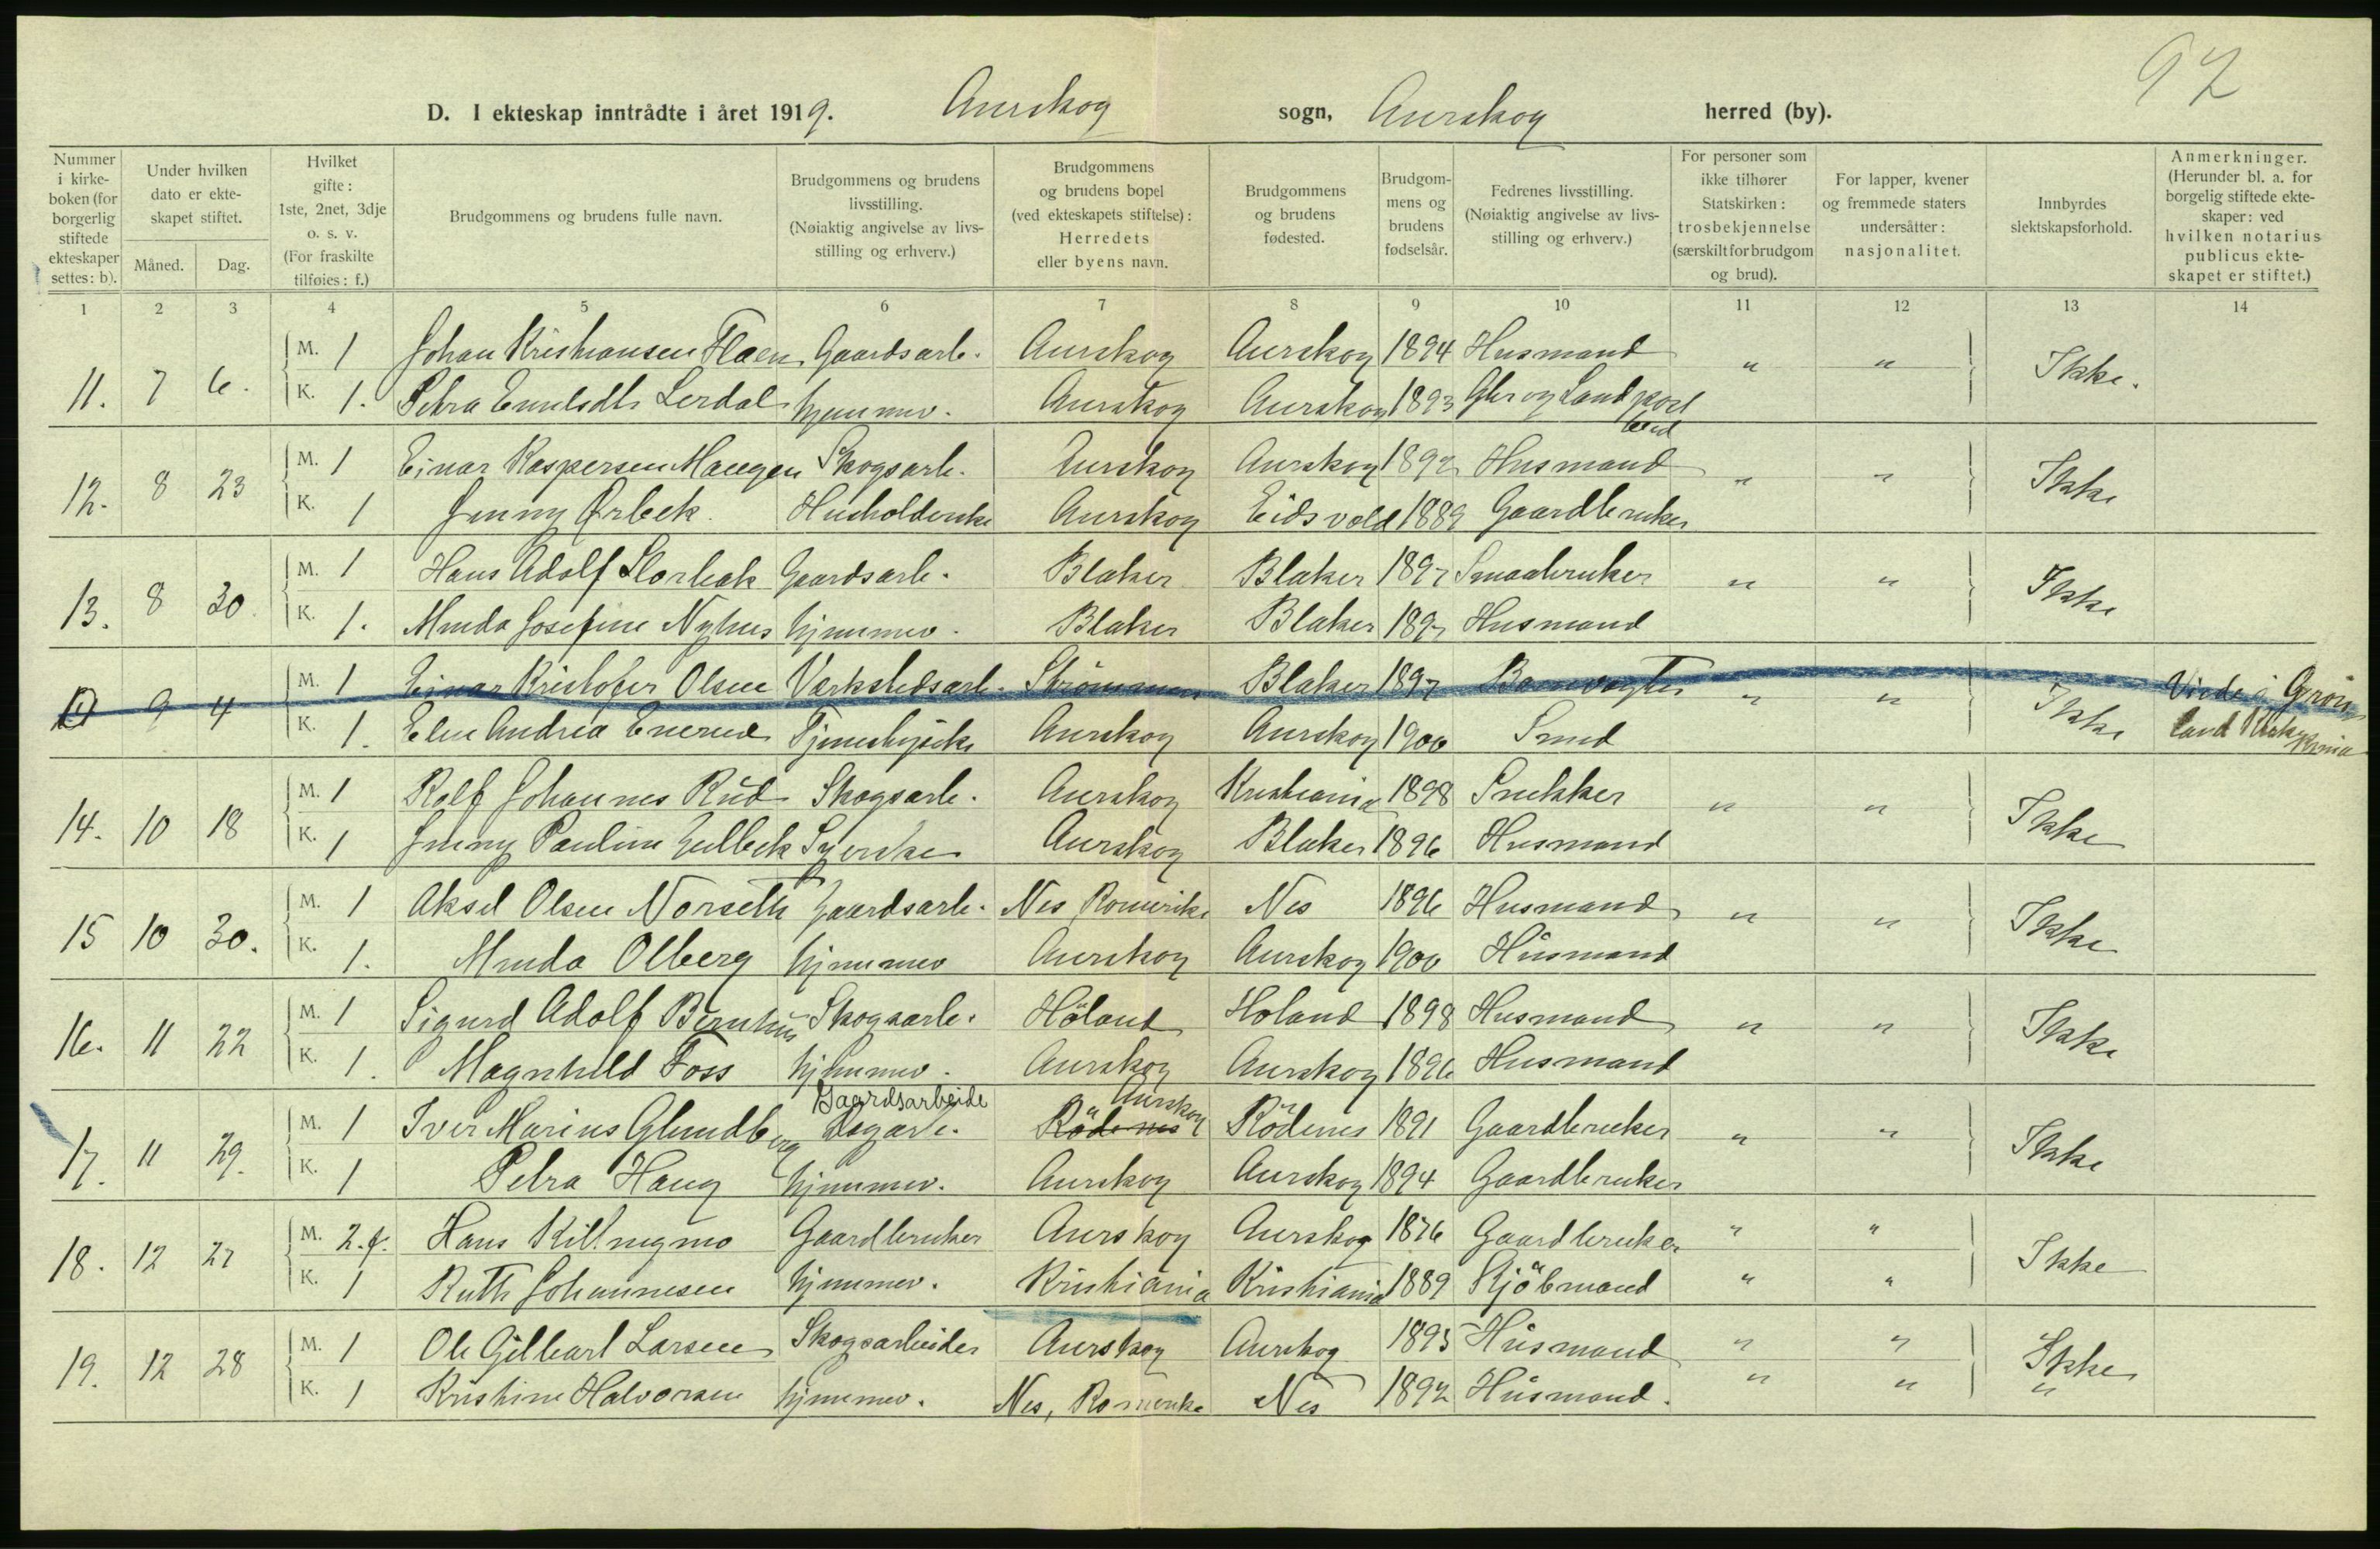 97
D. I ekteskap inntrådte i året 1919. Aurskog sogn, Aurskog herred (by).
Nummer i kirke-boken (for borgerlig stiftede ekteskaper settes: b).
Under hvilken dato er ekte-skapet stiftet.
Måned. Dag.
Hvilket gifte: 1ste, 2net, 3dje o. s. v. (For fraskilte tilføies: f.)
Brudgommens og brudens fulle navn.
Brudgommens og brudens livsstilling. (Nøiaktig angivelse av livs-stilling og erhverv.)
Brudgommens og brudens bopel (ved ekteskapets stiftelse): Herredets eller byens navn.
Brudgommens og brudens fødested.
Brudgom-mens og brudens fødselsår.
Fedrenes livsstilling. (Nøiaktig angivelse av livs-stilling og erhverv.)
For personer som ikke tilhører Statskirken: trosbekjennelse (særskilt for brudgom og brud).
For lapper, kvener og fremmede staters undersåtter: nasjonalitet.
Innbyrdes slektskapsforhold.
Anmerkninger. (Herunder bl. a. for borgelig stiftede ekte-skaper: ved hvilken notarius publicus ekte-skapet er stiftet.)
1 2 3 4 5 6 7 8 9 10 11 12 13 14
M. 1 Johan Kristiansen Flaen Gaardsarb. Aurskog Aurskog 1894 Husmand
11. 7 6. " " Ikke.
K. 1. Petra Emilsdtr Lerdal hjemmev. Aurskog Aurskog 1893 Gbr og Landpost bud
M. 1 Einar Kaspersen Mangen Skogsarb. Aurskog Aurskog 1892 Husmand
12. 8 23 " " Ikke
K. 1 Jenny Ørbek Husholderske Aurskog Eidsvold 1889 Gaardbruker
M. 1 Hans Adolf Storbak Gaardsarb. Blaker Blaker 1897 Smaabruker
13. 8 30. " " Ikke
K. 1. Minda Josefine Nyhus hjemmev. Blaker Blaker 1897 Husmand
M. 1 Einar Kristofer Olsen Værkstedsarb. Strömmen Blaker 1897 Banevogter
9 4 " " Ikke Viede i Grön
K. 1. Eline Andrea Enerud Tjenestepike Aurskog Aurskog 1900 Smed land Kirke Kr.ania
M. 1 Rolf Johannes Rud Skogsarb. Aurskog Kristiania 1898 Snekker
14. 10 18 " " Ikke
K. 1 Jenny Pauline Gulbek Syerske Aurskog Blaker 1896 Husmand
M. 1 Aksel Olsen Norseth Gaardsarb. Nes Romerike Nes 1896 Husmand
15 10 30. " " Ikke
K. 1. Minda Olberg hjemmev Aurskog Aurskog 1900 Husmand
M. 1 Sigurd Adolf Bernhus Skogsarb. Höland Höland 1898 Husmand
16. 11 22 " " Ikke
K. 1. Magnhild Foss hjemmev. Aurskog Aurskog 1896 Husmand
Gaardsarbeide Aurskog
M. 1 Iver Marius Glundberg Dagarb. Rödenes Rödenes 1891 Gaardbruker
17. 11 29. " " Ikke
K. 1 Petra Haug hjemmev. Aurskog Aurskog 1894 Gaardbruker
M. 2.f. Hans Killingmo Gaardbruker Aurskog Aurskog 1876 Gaardbruker " "
18. 12 27 Ikke
K. 1 Ruth Johannesen hjemmev. Kristiania Kristiania 1889 Kjöbmand " "
M. 1 Ole Gilbart Larsen Skogsarbeider Aurskog Aurskog 1895 Husmand " "
19. 12 28 Ikke
K. 1 Kristine Halvorsen hjemmev. Nes, Romerike Nes 1892 Husmand. " " "